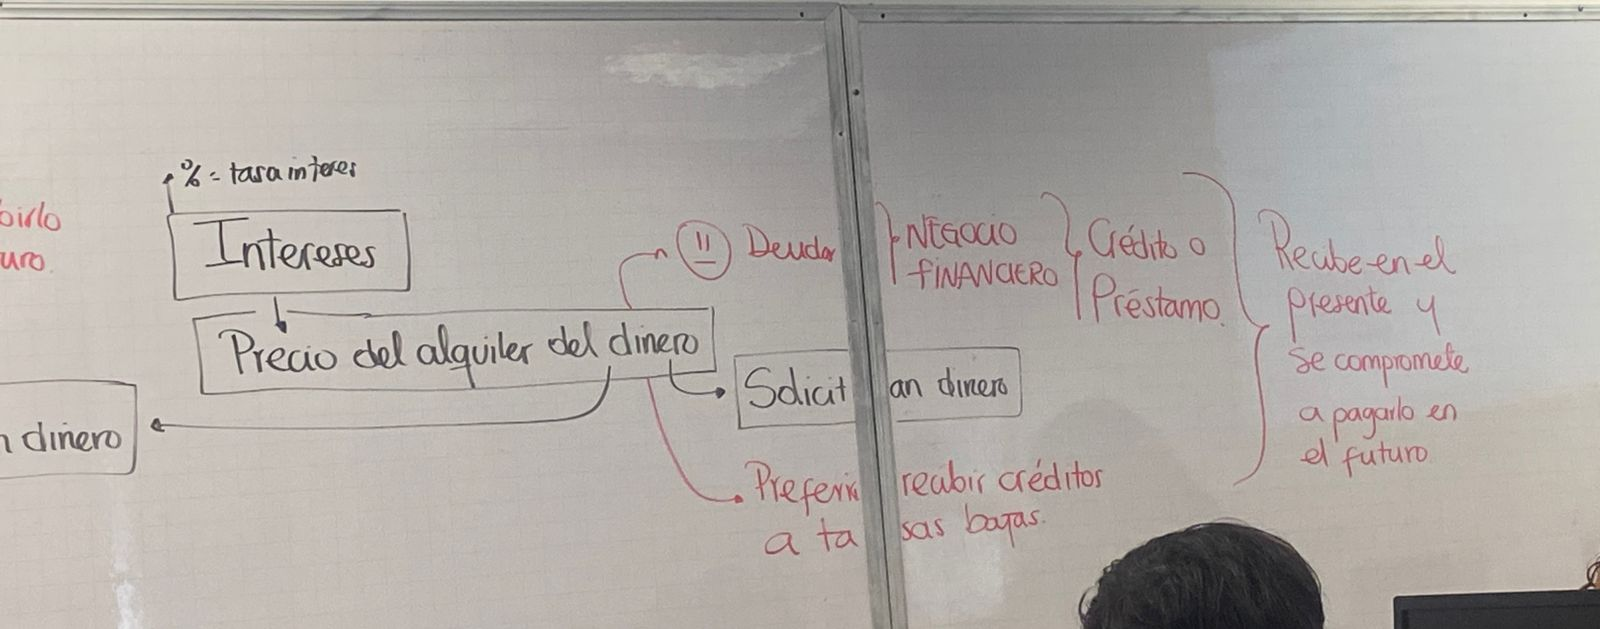 % = tasa interes
Intereses
Precio del alquiler del dinero
dinero
Deudor
NEGOCIO
FINANCIERO
Crédito o
Préstamo.
Recibe en el
presente y
se compromete
a pagarlo en
el futuro
Solicitan dinero
Preferir recibir créditos
a tasas bajas.